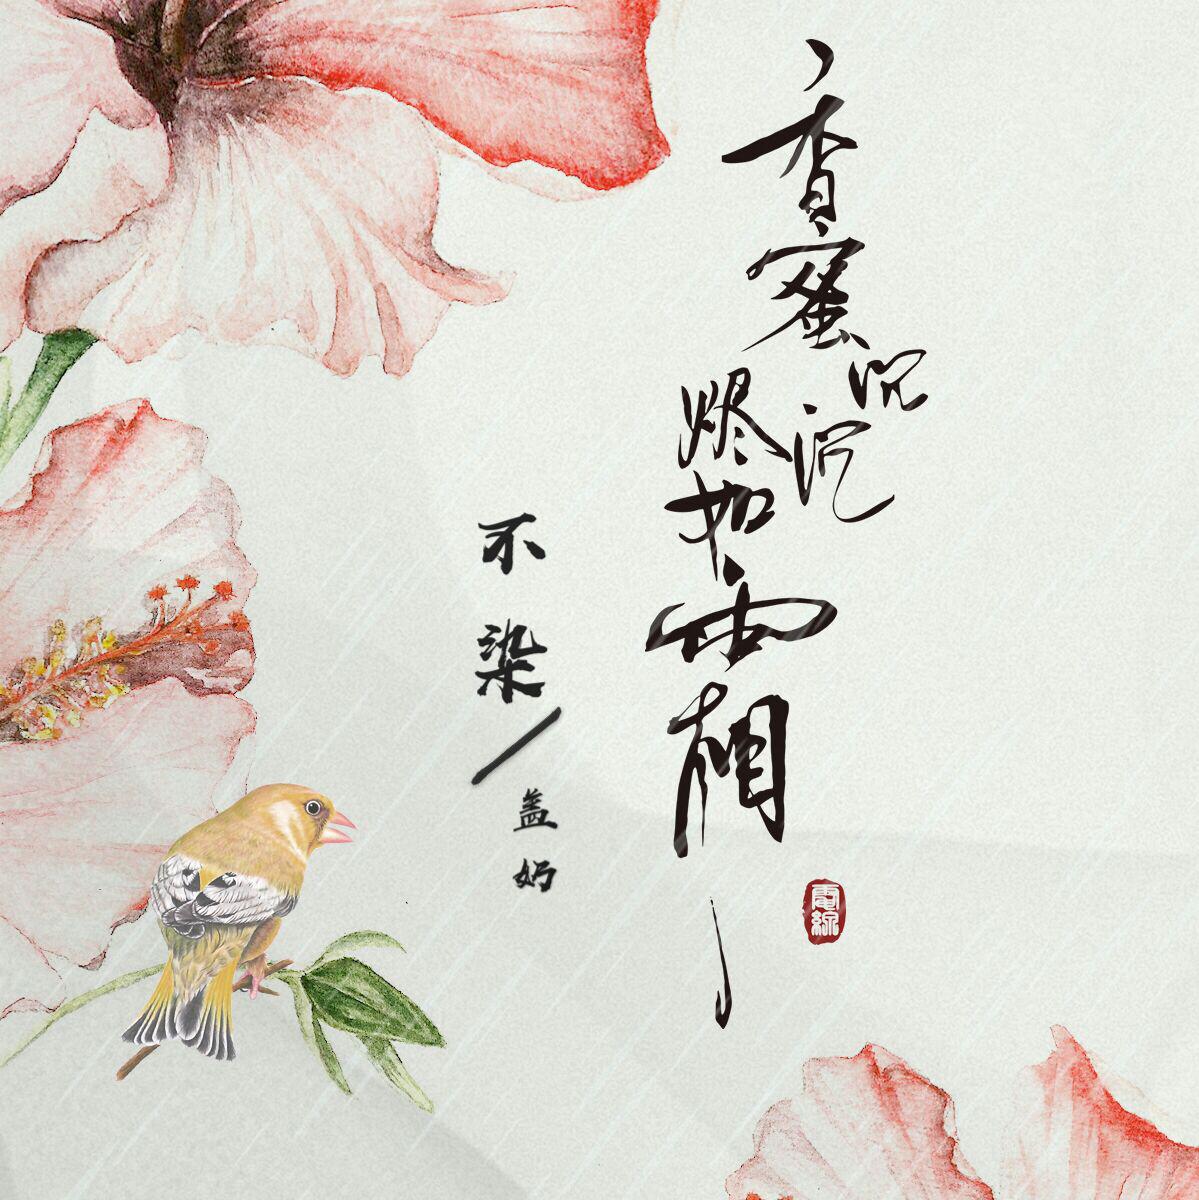 香蜜沉沉
烬如霜
不染
盖奶
電綜